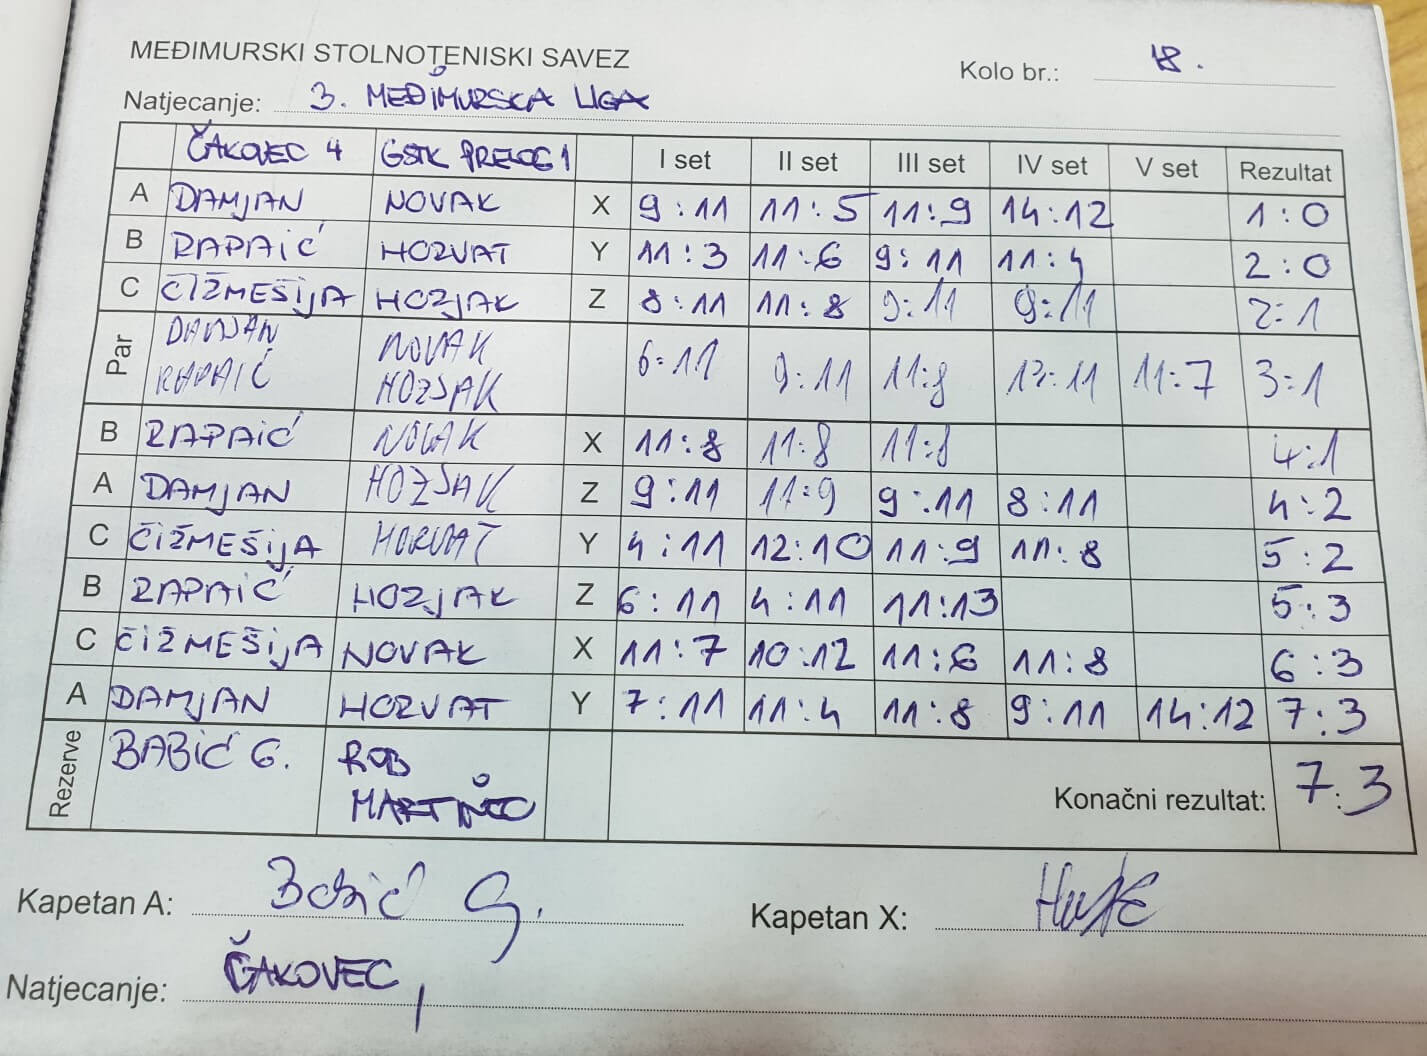 MEĐIMURSKI STOLNOTENISKI SAVEZ
Kolo br.: 18.
Natjecanje: 3. MEĐIMURSKA LIGA
ČAKOVEC 4 GSTK PRELOG 1 I set II set III set IV set V set Rezultat
A DAMJAN NOVAK X 9:11 11:5 11:9 14:12 1:0
B RAPAIĆ HORVAT Y 11:3 11:6 9:11 11:4 2:0
C ČIŽMEŠIJA HOZJAK Z 8:11 11:8 9:11 9:11 2:1
Par DAMJAN RAPAIĆ NOVAK HOZJAK 6:11 9:11 11:8 13:11 11:7 3:1
B RAPAIĆ NOVAK X 11:8 11:8 11:8 4:1
A DAMJAN HOZJAK Z 9:11 11:9 9:11 8:11 4:2
C ČIŽMEŠIJA HORVAT Y 4:11 12:10 11:9 11:8 5:2
B RAPAIĆ HOZJAK Z 6:11 4:11 11:13 5:3
C ČIŽMEŠIJA NOVAK X 11:7 10:12 11:6 11:8 6:3
A DAMJAN HORVAT Y 7:11 11:4 11:8 9:11 14:12 7:3
Rezerve BABIĆ G. ROB
Konačni rezultat: 7:3
Kapetan A: Babić G. Kapetan X:
Natjecanje: ČAKOVEC,